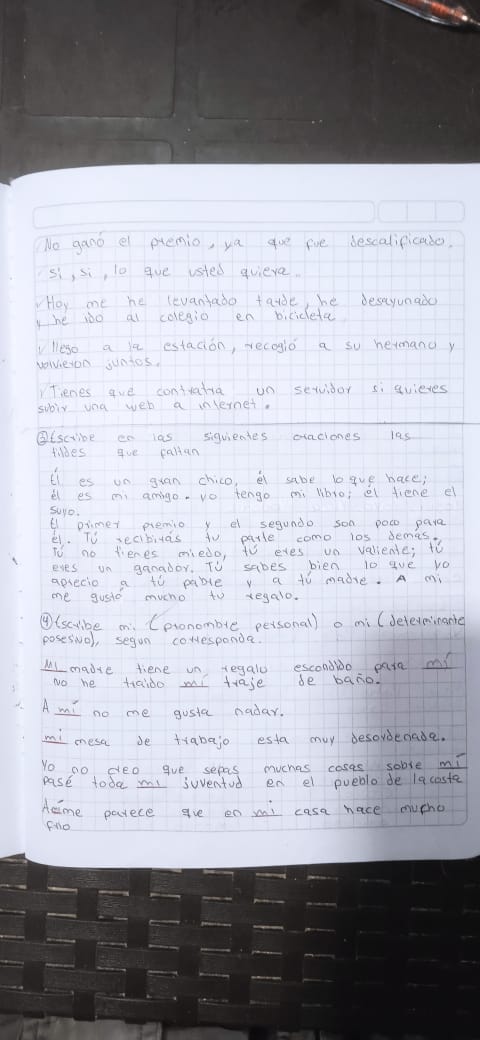 No ganó el premio, ya que fue descalificado.
si, si, lo que usted quiera..
Hoy me he levantado tarde, he desayunado
y he ido al colegio en bicicleta
llego a la estación, recogió a su hermano y
volvieron juntos.
Tienes que contratra un servidor si quieres
subir una web a internet.
Escribe en las siguientes oraciones las
tildes que faltan
Él es un gran chico, él sabe lo que hace;
él es mi amigo. yo tengo mi libro; él tiene el
suyo.
El primer premio y el segundo son poco para
él. Tú recibirás tu parte como los demás.
Tú no tienes miedo, tú eres un valiente; tú
eres un ganador. Tú sabes bien lo que yo
aprecio a tú pable y a tú madre. A mi
me gustó mucho tu regalo.
④ Escribe mi (pronombre personal) o mi (determinante
posesivo), segun corresponda.
Mi madre tiene un regalo escondido para mí
No he traido mí traje de baño.
A mí no me gusta nadar.
mi mesa de trabajo esta muy desordenada.
Yo no creo que sepas muchas cosas sobre mí
Pasé toda mi juventud en el pueblo de la costa
parece que en mi casa hace mucho
frio